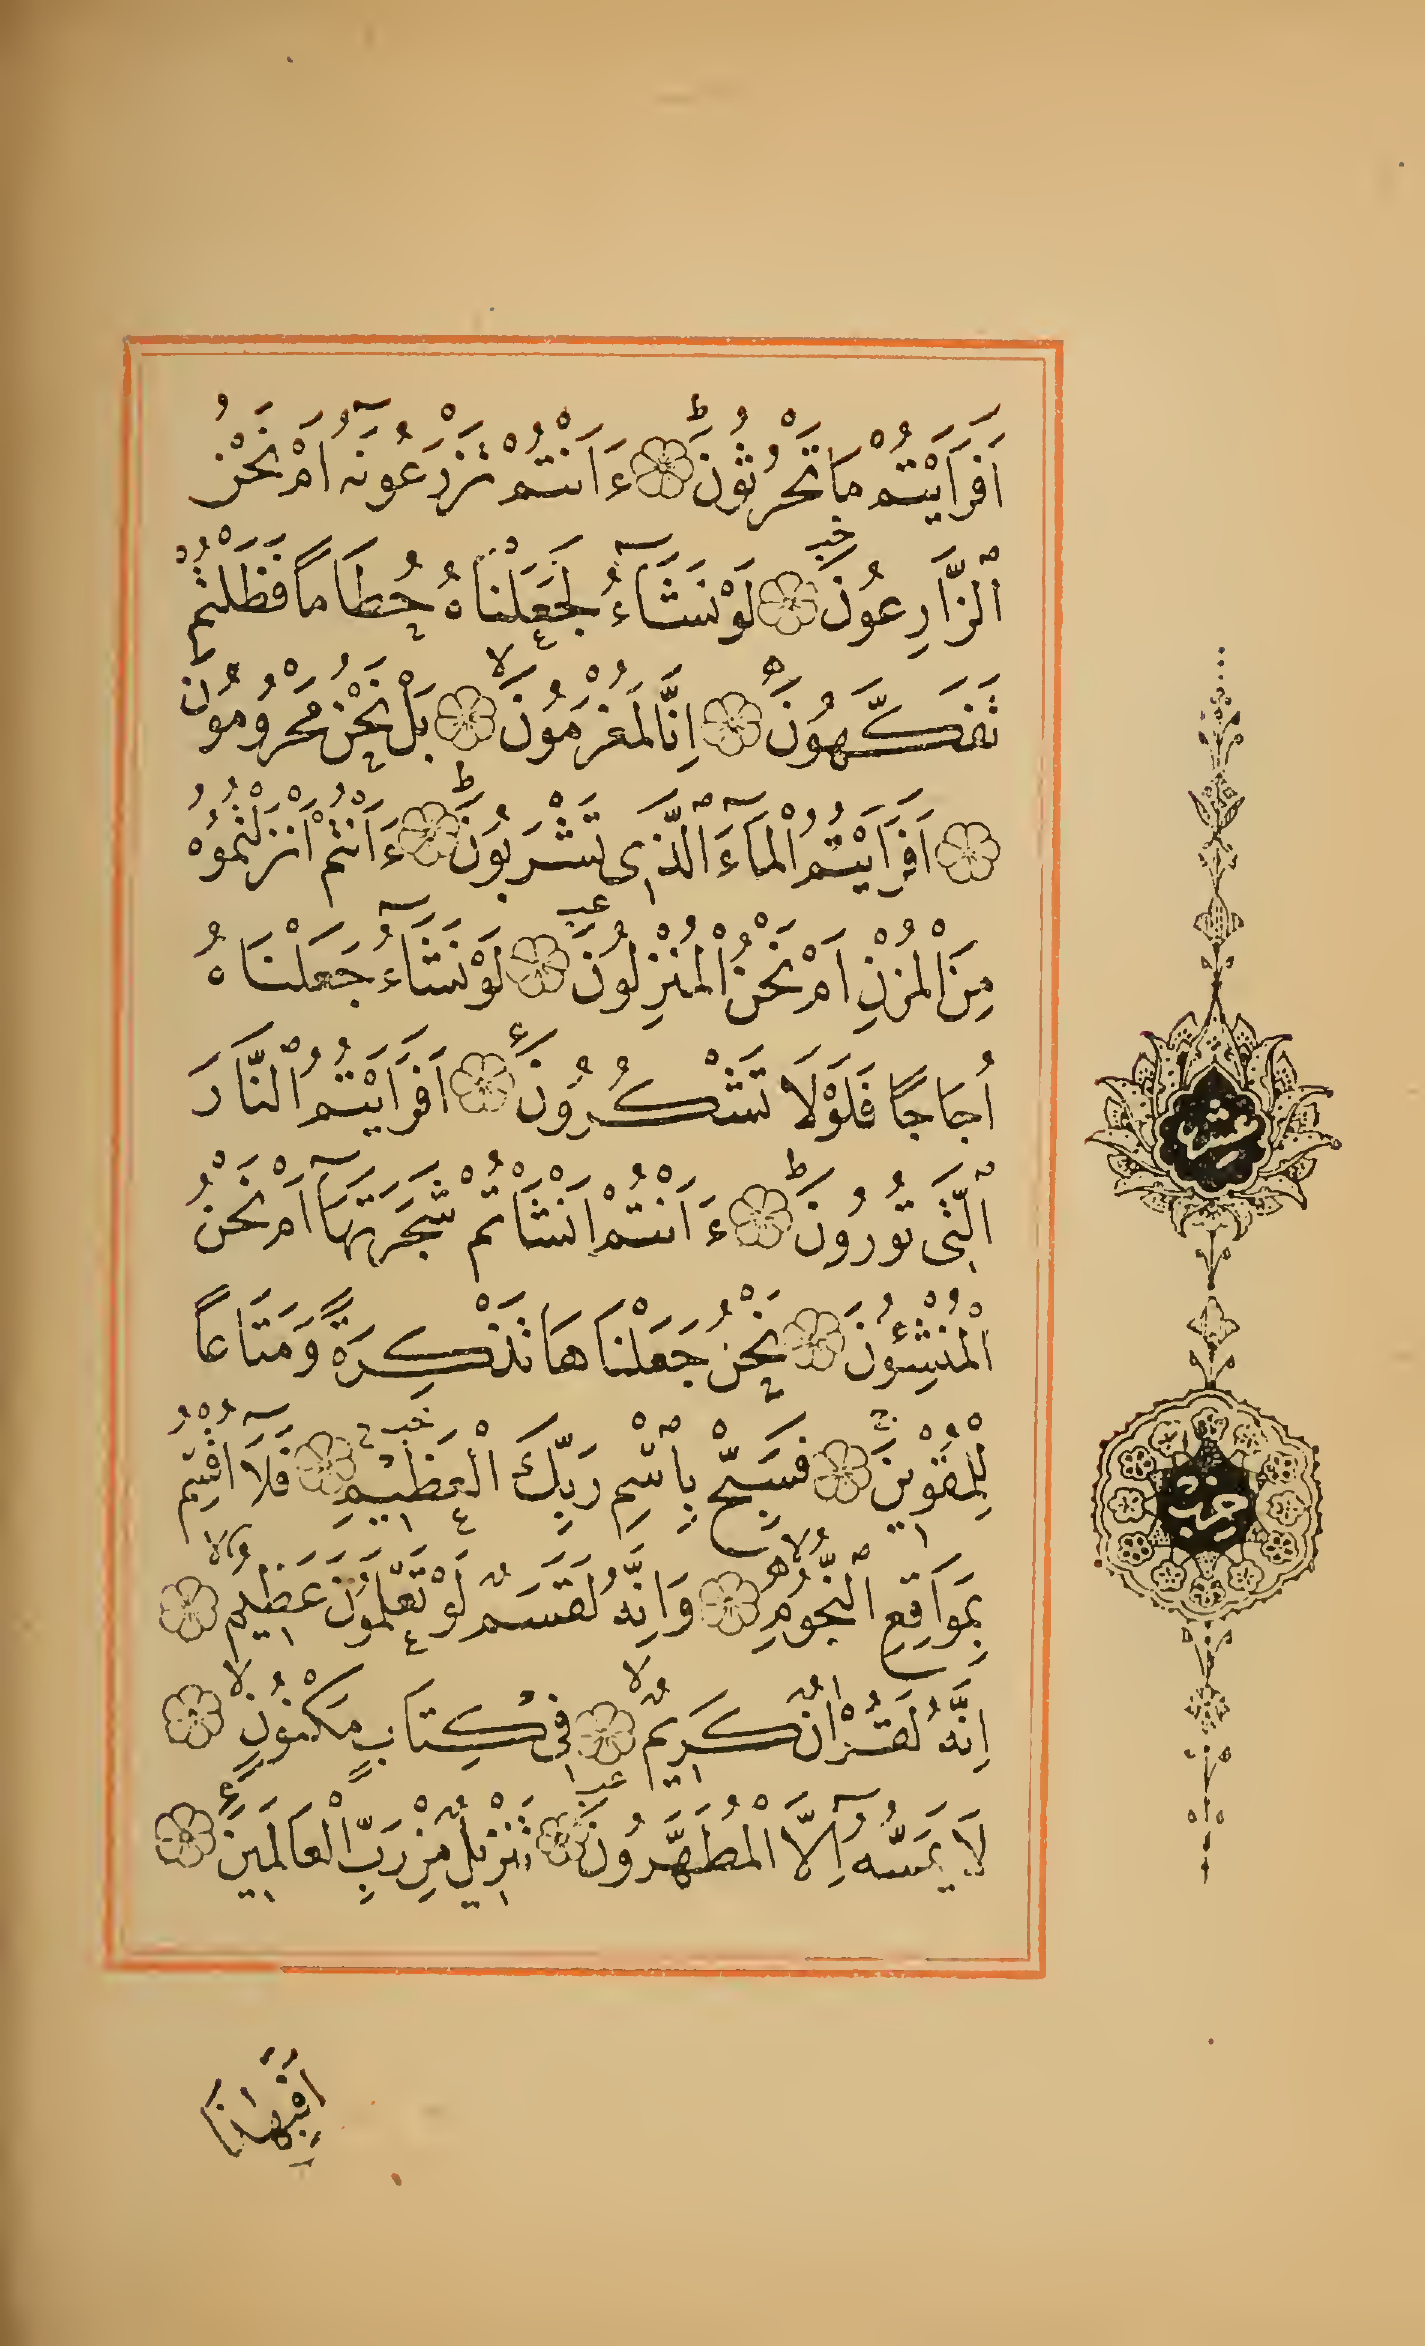 اَفَرَاَيْتُمْ مَا تَحْرُثُونَ ءَاَنْتُمْ تَزْرَعُونَهُ اَمْ نَحْنُ
الزَّارِعُونَ لَوْ نَشَاءُ لَجَعَلْنَاهُ حُطَامًا فَظَلْتُمْ
تَفَكَّهُونَ اِنَّا لَمُغْرَمُونَ بَلْ نَحْنُ مَحْرُومُونَ
اَفَرَاَيْتُمُ الْمَاءَ الَّذِى تَشْرَبُونَ ءَاَنْتُمْ اَنْزَلْتُمُوهُ
مِنَ الْمُزْنِ اَمْ نَحْنُ الْمُنْزِلُونَ لَوْ نَشَاءُ جَعَلْنَاهُ
اُجَاجًا فَلَوْلَا تَشْكُرُونَ اَفَرَاَيْتُمُ النَّارَ
الَّتِى تُورُونَ ءَاَنْتُمْ اَنْشَاْتُمْ شَجَرَتَهَا اَمْ نَحْنُ
الْمُنْشِؤُنَ نَحْنُ جَعَلْنَاهَا تَذْكِرَةً وَمَتَاعًا
لِلْمُقْوِينَ فَسَبِّحْ بِاسْمِ رَبِّكَ الْعَظِيمِ فَلَا اُقْسِمُ
بِمَوَاقِعِ النُّجُومِ وَاِنَّهُ لَقَسَمٌ لَوْ تَعْلَمُونَ عَظِيمٌ
اِنَّهُ لَقُرْاٰنٌ كَرِيمٌ فِى كِتَابٍ مَكْنُونٍ
لَا يَمَسُّهُ اِلَّا الْمُطَهَّرُونَ تَنْزِيلٌ مِنْ رَبِّ الْعَالَمِينَ
عشر
حزب
اَفَبِهٰذَا